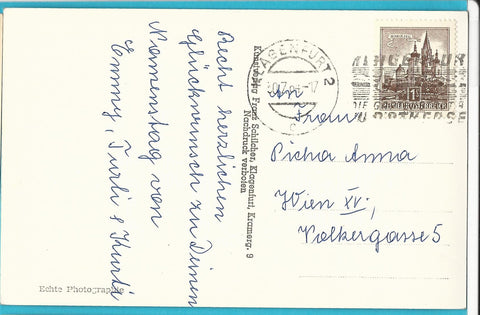 Recht herzlichen
Glückwunsch zu Deinem
Namenstag von
Emmy, Turli & Kurti
Echte Photographie
Kunstverlag Franz Schilcher, Klagenfurt, Kramerg. 9
Nachdruck verboten
KLAGENFURT 2
An
Frau
Picha Anna
Wien XV,
Volkergasse 5